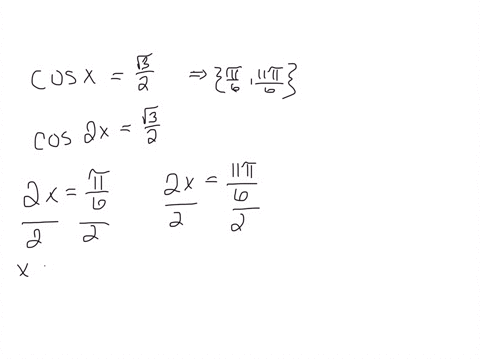 cos x = √3/2 ⇒ {π/6, 11π/6}
cos 2x = √3/2
2x/2 = π/6/2 2x/2 = 11π/6/2
x